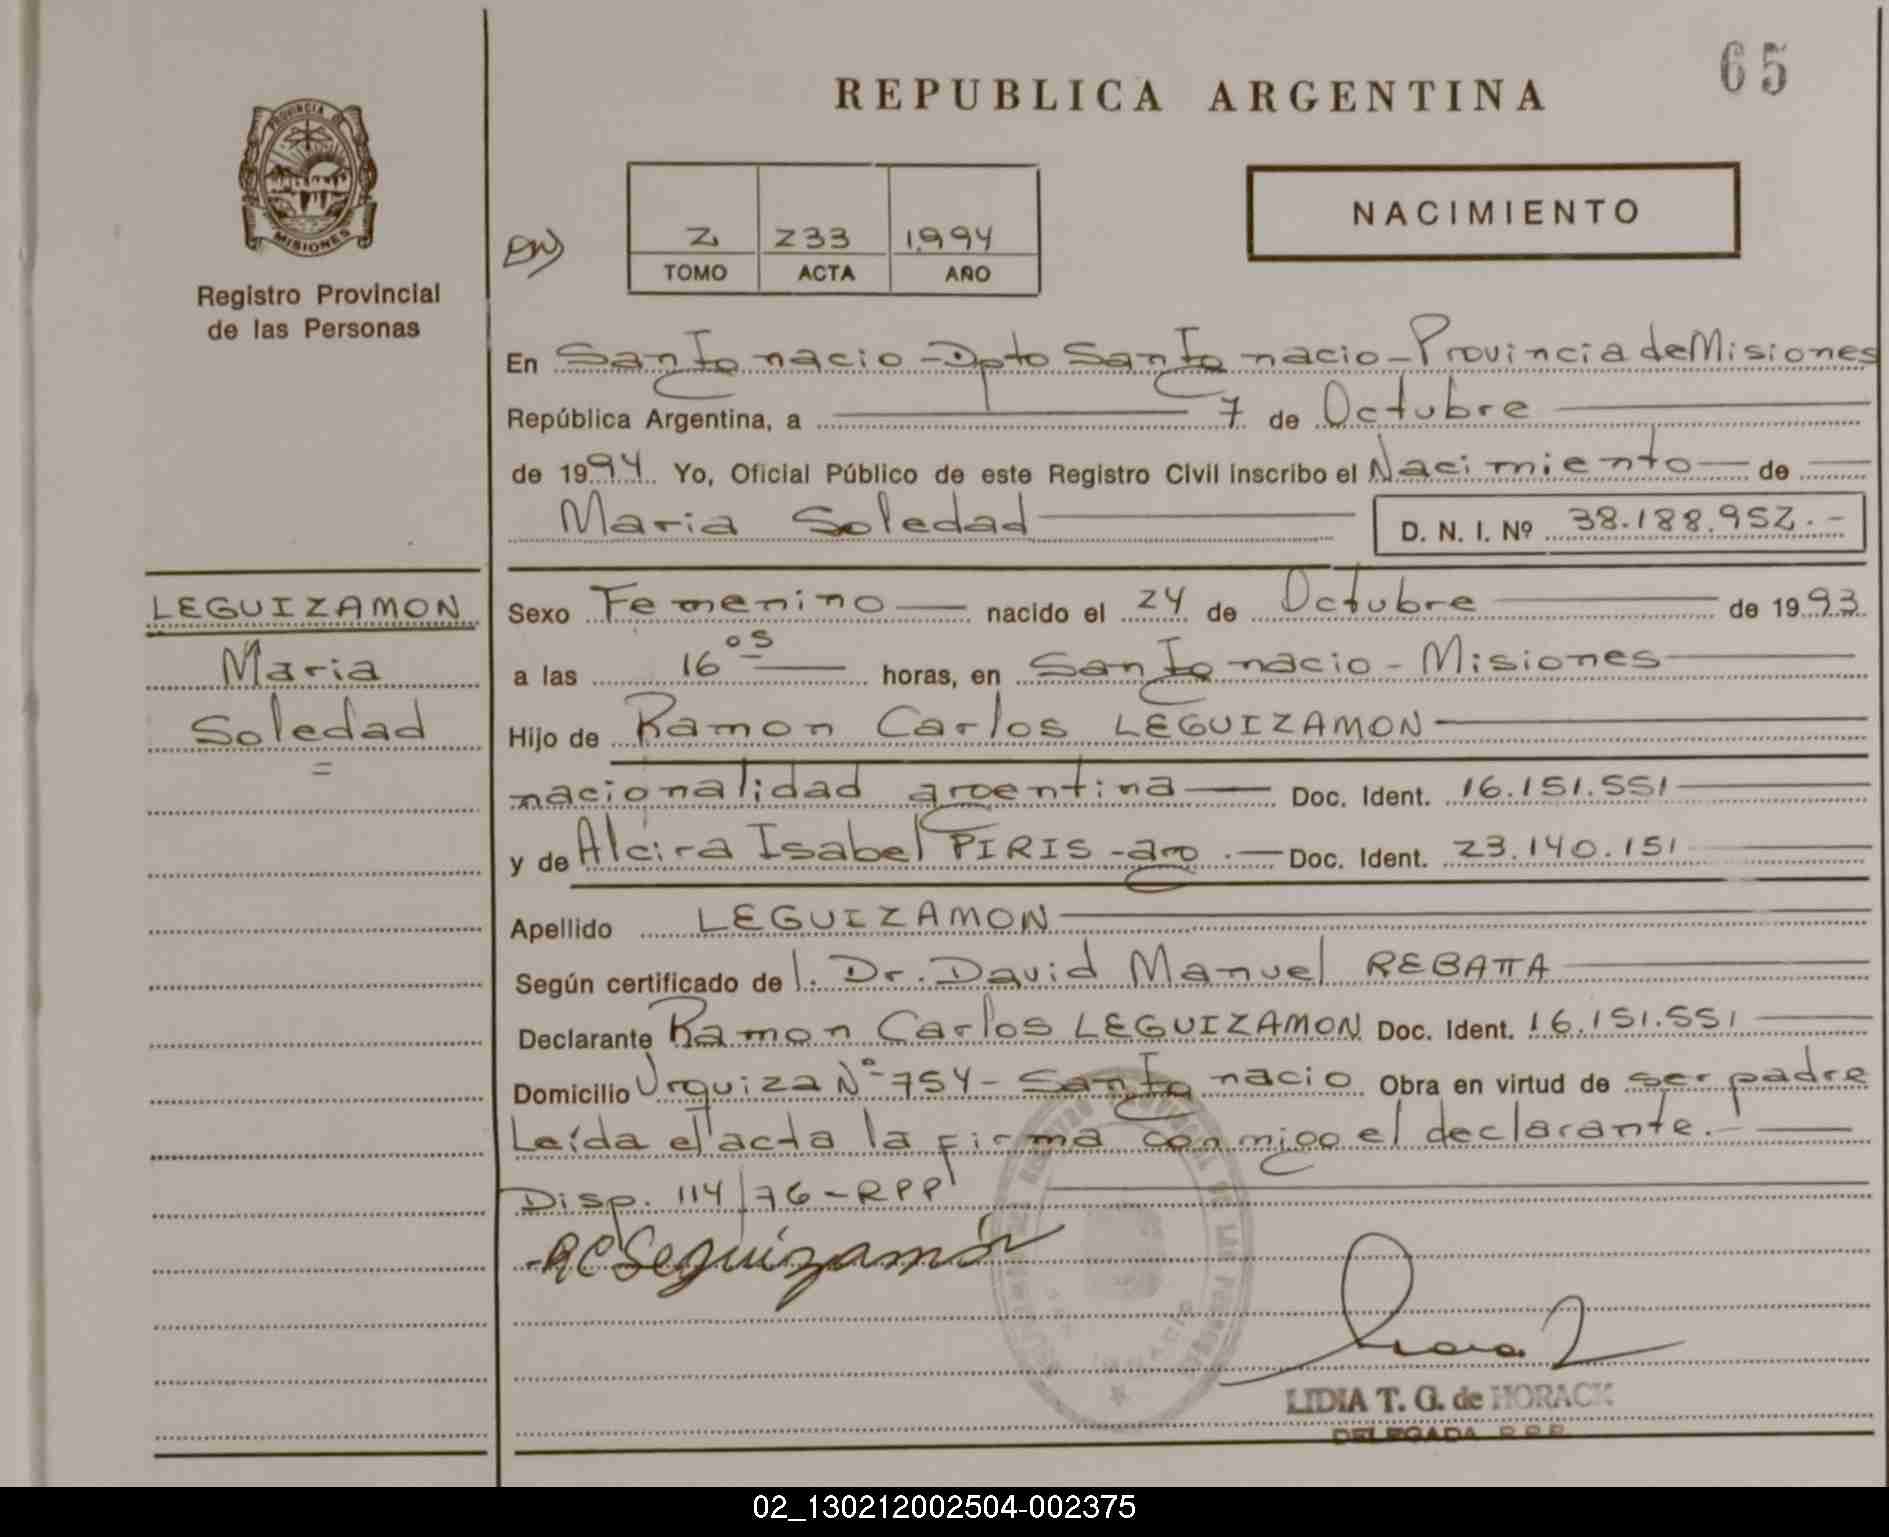 65
REPUBLICA ARGENTINA
PROVINCIA DE
MISIONES
Registro Provincial
de las Personas
NACIMIENTO
2 233 1994
TOMO ACTA AÑO
En San Ignacio - Dpto San Ignacio - Provincia de Misiones
República Argentina, a 7 de Octubre
de 1994 Yo, Oficial Público de este Registro Civil inscribo el Nacimiento de
Maria Soledad D. N. I. Nº 38.188.952.-
LEGUIZAMON
Maria
Soledad
=
Sexo Femenino nacido el 24 de Octubre de 1993
a las 16 os horas, en San Ignacio - Misiones
Hijo de Ramon Carlos LEGUIZAMON
nacionalidad argentina Doc. Ident. 16.151.551
y de Alcira Isabel PIRIS - arg. Doc. Ident. 23.140.151
Apellido LEGUIZAMON
Según certificado de l. Dr. David Manuel REBATTA
Declarante Ramon Carlos LEGUIZAMON Doc. Ident. 16.151.551
Domicilio Urquiza Nº 754 - San Ignacio Obra en virtud de ser padre
Leída el acta la firma conmigo el declarante.-
Disp. 114/76 - RPP
RCLeguizamón
LIDIA T. G. de HORACK
DELEGADA R.P.P.
02_130212002504-002375